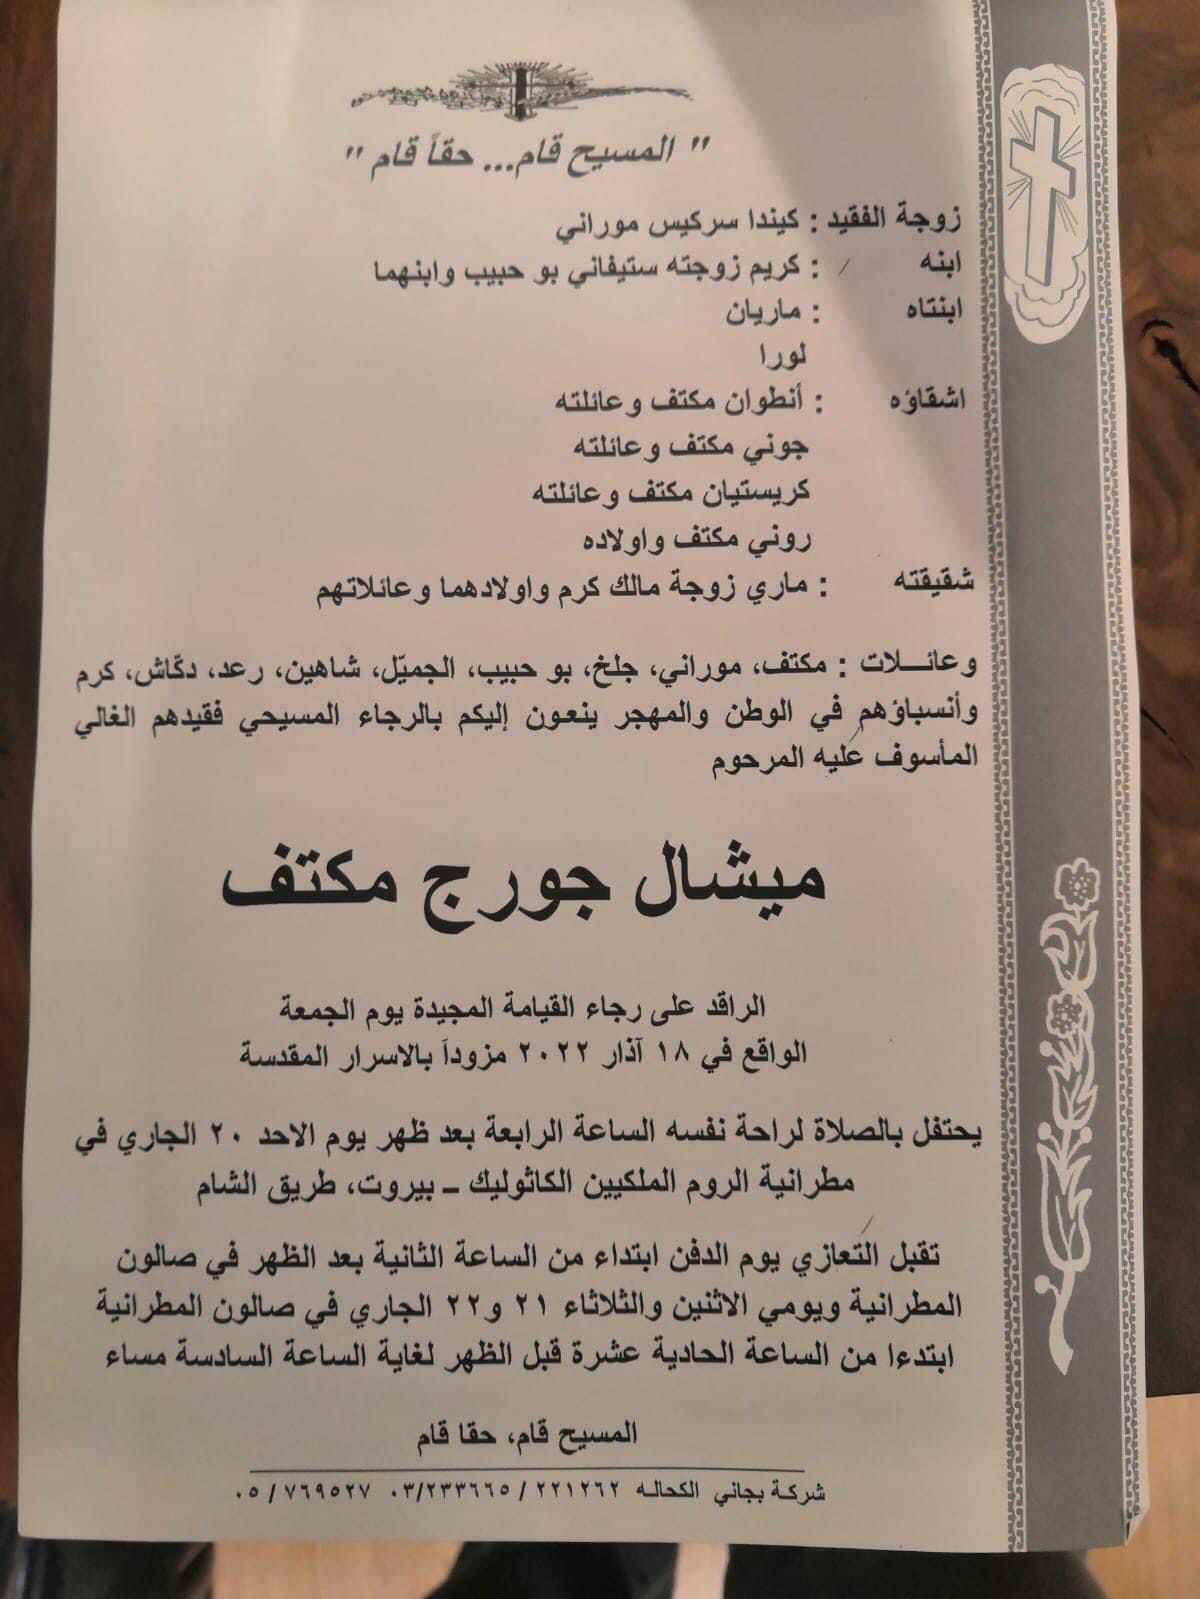 " المسيح قام... حقاً قام "
زوجة الفقيد : كيندا سركيس موراني
ابنه : كريم زوجته ستيفاني بو حبيب وابنهما
ابنتاه : ماريان
لورا
اشقاؤه : أنطوان مكتف وعائلته
جوني مكتف وعائلته
كريستيان مكتف وعائلته
روني مكتف واولاده
شقيقته : ماري زوجة مالك كرم واولادهما وعائلاتهم
وعائـــلات : مكتف، موراني، جلخ، بو حبيب، الجميّل، شاهين، رعد، دكّاش، كرم
وأنسباؤهم في الوطن والمهجر ينعون إليكم بالرجاء المسيحي فقيدهم الغالي
المأسوف عليه المرحوم
ميشال جورج مكتف
الراقد على رجاء القيامة المجيدة يوم الجمعة
الواقع في ١٨ آذار ٢٠٢٢ مزوداً بالاسرار المقدسة
يحتفل بالصلاة لراحة نفسه الساعة الرابعة بعد ظهر يوم الاحد ٢٠ الجاري في
مطرانية الروم الملكيين الكاثوليك – بيروت، طريق الشام
تقبل التعازي يوم الدفن ابتداء من الساعة الثانية بعد الظهر في صالون
المطرانية ويومي الاثنين والثلاثاء ٢١ و٢٢ الجاري في صالون المطرانية
ابتدءا من الساعة الحادية عشرة قبل الظهر لغاية الساعة السادسة مساء
المسيح قام، حقا قام
شركة بجاني الكحاله ٢٢١٢٦٢ / ٠٣/٢٣٣٦٦٥ ٠٥/٧٦٩٥٢٧